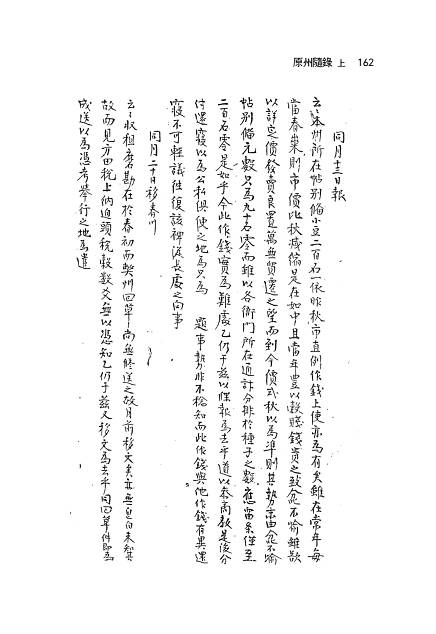 原州隨錄 上 162
同月十三日報
云〻本州所在帖別備小豆二百石一依昨秋市直例作錢上使亦爲有矣雖在常年每
當春巢則市價比秋減備是在如中且當年豊以穀賤錢貴之致愈不喩雖欲
以詳定價發賣良置萬無貿遷之望而到今價式秋以爲準則其勢末由愈不喩
帖別備元數只爲九十石零而雖以各衙門所在通計分排於種子之數應留條僅至
二百石零是如乎今此作錢實爲難處乙仍于玆以牒報爲去乎道以參商敎是後分
付還寢以爲公私俱便之地爲只爲 題事勢非不稔知而此作錢與他作錢有異還
寢不可輕議往復該裨從長處之向事
同月二十日移春川
云〻收租磨勘在於春初而貴州回草尙無修送之故月前移文矣亦無皂白未知其
故而見方田稅上納迫頭稅穀數爻無以憑知乙仍于玆又移文爲去乎同回草作即爲
成送以爲憑考擧行之地爲遣